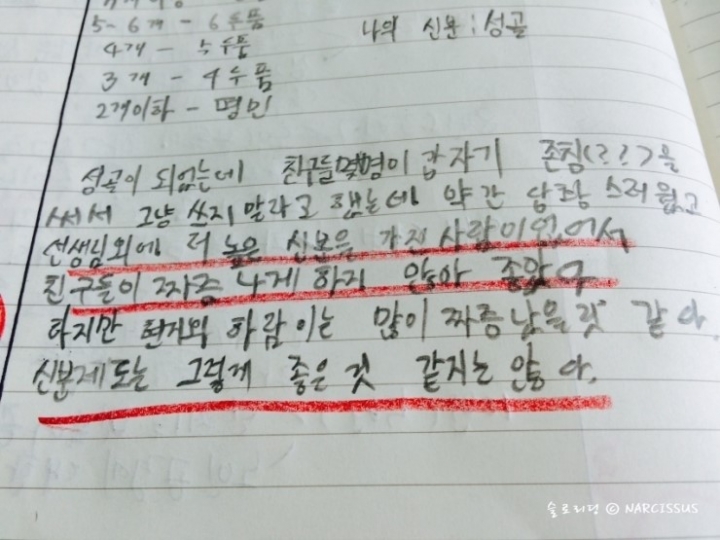 5-6개 - 6두품
4개 - 5두품
3개 - 4두품
2개이하 - 평민
나의 신분 : 성골
성골이 되었는데 친구들몇명이 갑자기 존칭(???)을
써서 그냥 쓰지 말라고 했는데 약간 당황 스러웠고
선생님외에 더 높은 신분을 가진 사람이없어서
친구들이 짜증 나게 하지 않아 좋았어
하지만 현거와 하람이는 많이 짜증났을것 같아.
신분제도는 그렇게 좋은것 같지는 않아.
슬로리딩 © NARCISSUS